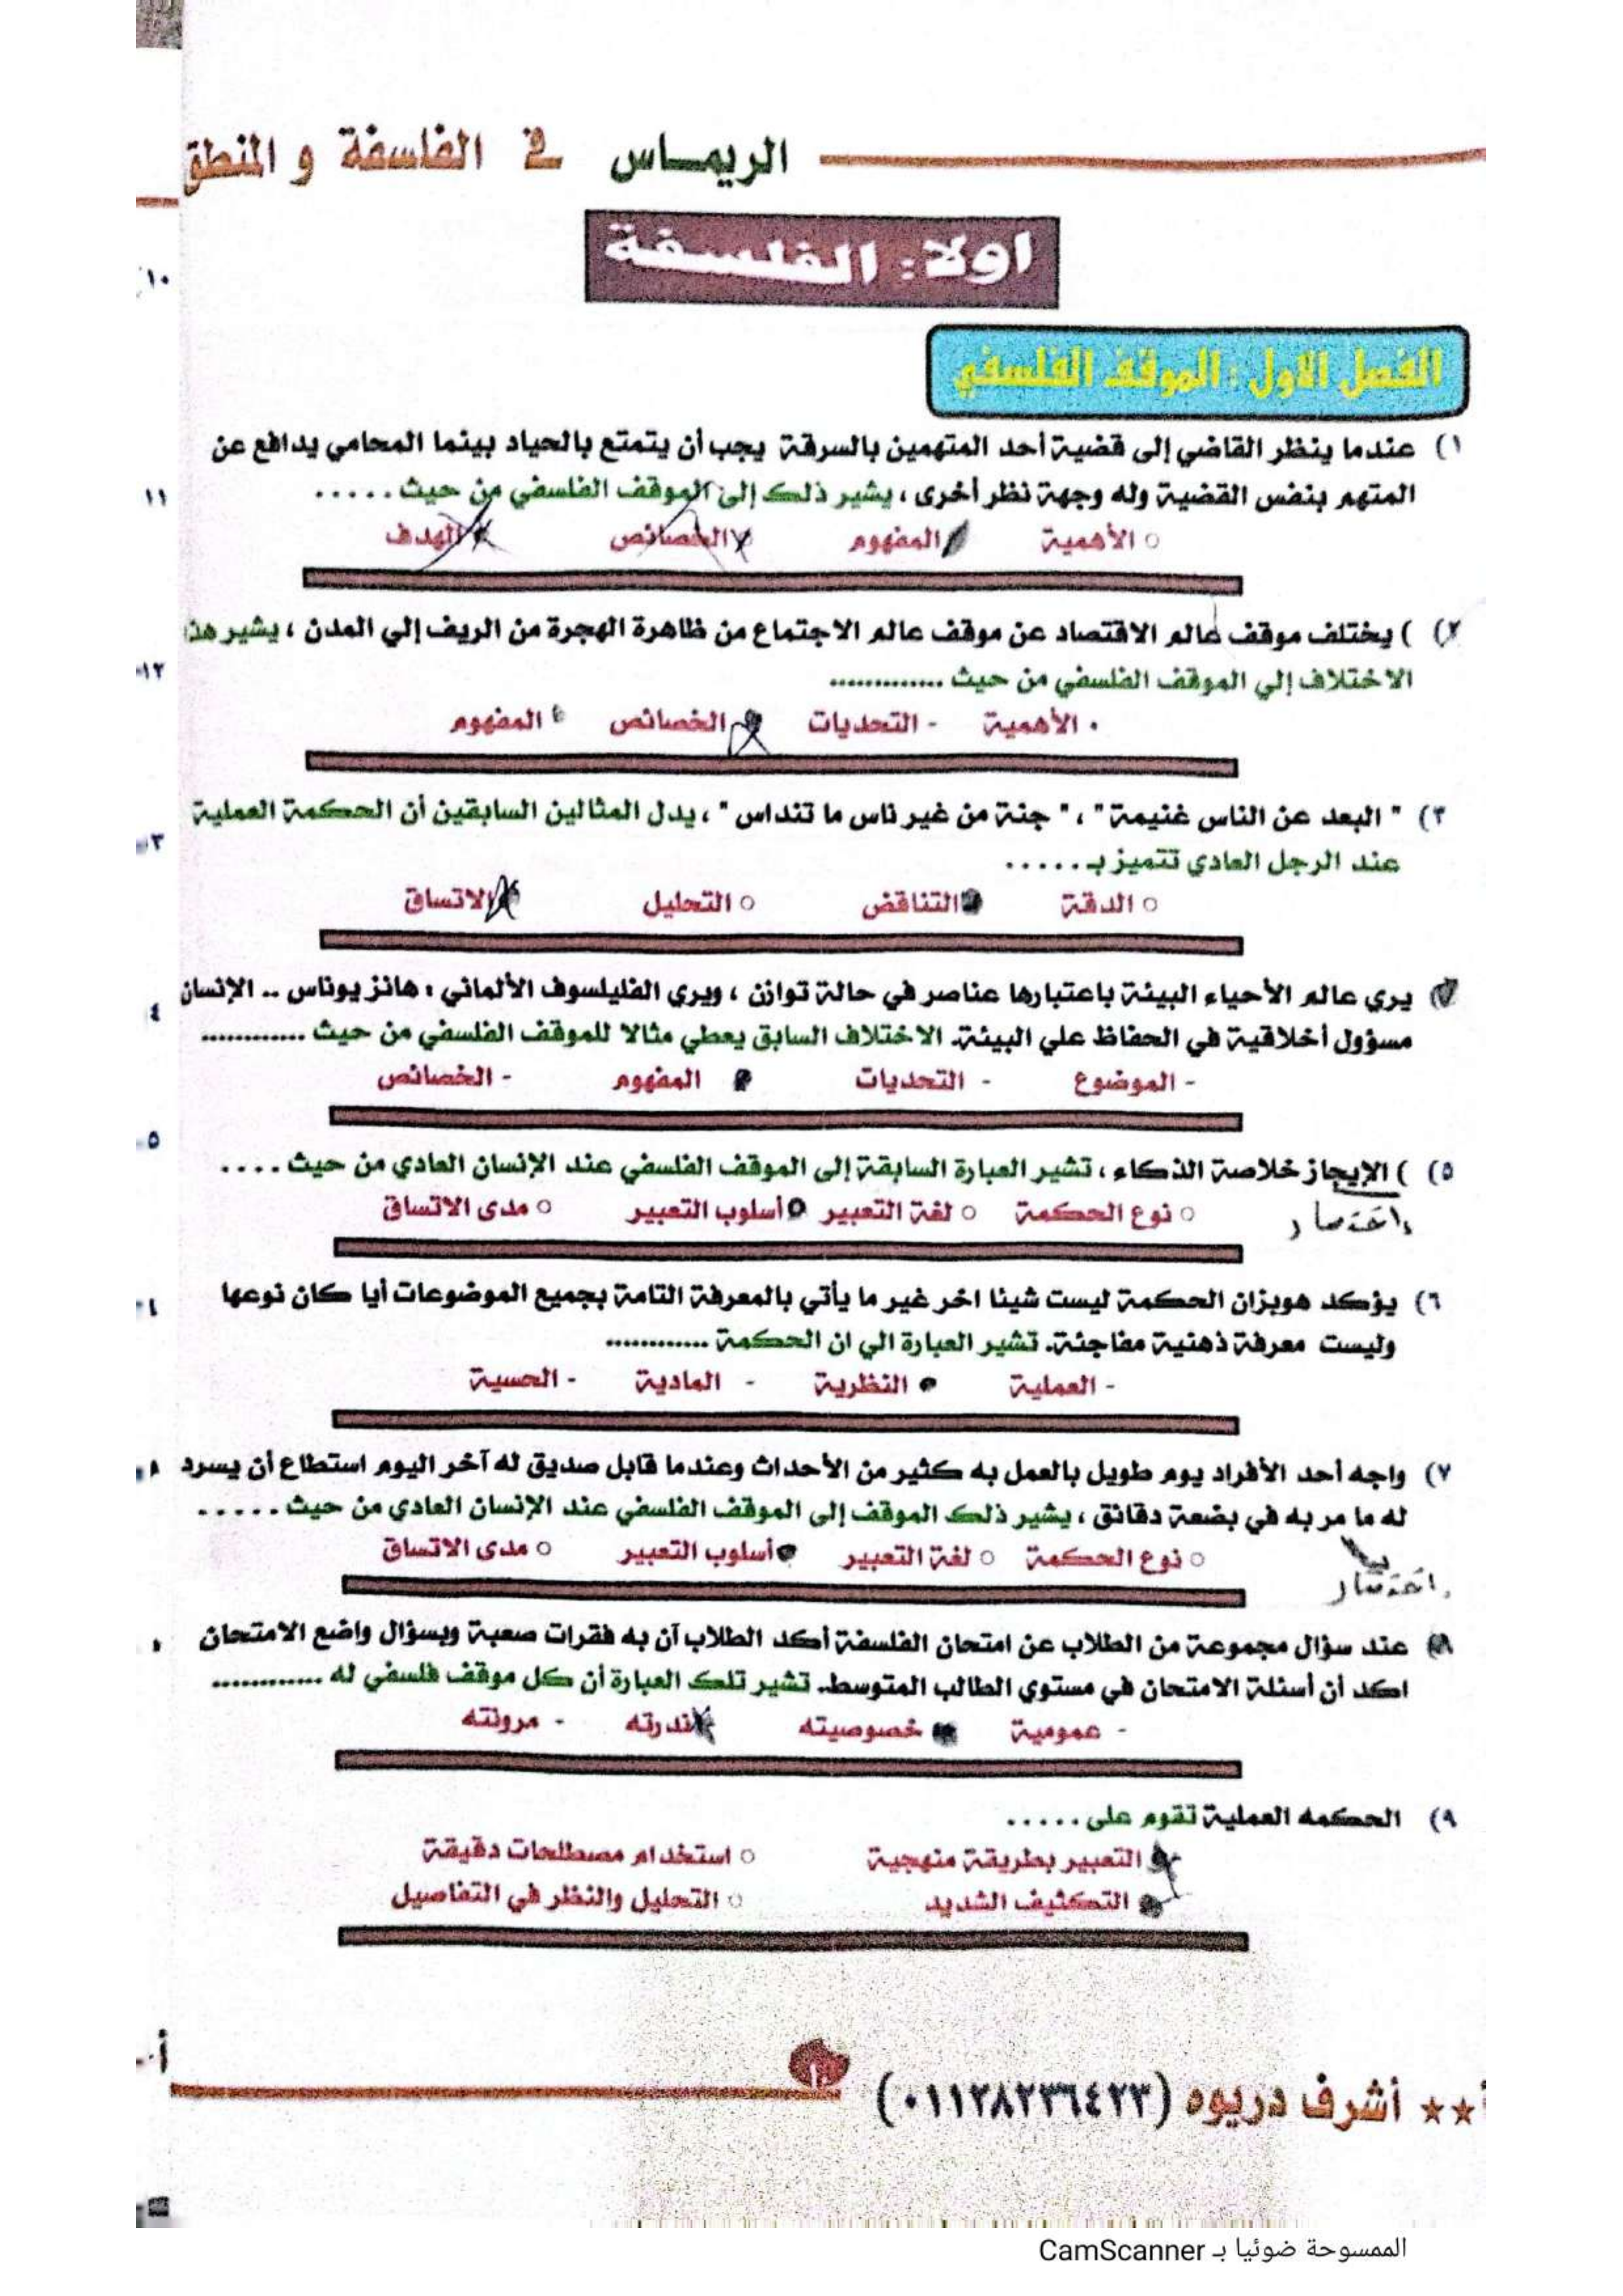 الريماس في الفلسفة و المنطق
اولا: الفلسفة
الفصل الاول : الموقف الفلسفي
١) عندما ينظر القاضي إلى قضية أحد المتهمين بالسرقة يجب أن يتمتع بالحياد بينما المحامي يدافع عن
المتهم بنفس القضية وله وجهة نظر أخرى ، يشير ذلك إلى الموقف الفلسفي من حيث .....
○ الأهمية المفهوم الخصائص الهدف
٢) ) يختلف موقف عالم الاقتصاد عن موقف عالم الاجتماع من ظاهرة الهجرة من الريف إلي المدن ، يشير هذا
الاختلاف إلي الموقف الفلسفي من حيث .............
• الأهمية - التحديات الخصائص المفهوم
٣) " البعد عن الناس غنيمة " ، " جنة من غير ناس ما تنداس " ، يدل المثالين السابقين أن الحكمة العملية
عند الرجل العادي تتميز بـ .....
○ الدقة التناقض ○ التحليل الاتساق
يري عالم الأحياء البيئة باعتبارها عناصر في حالة توازن ، ويري الفليلسوف الألماني : هانز يوناس .. الإنسان
مسؤول أخلاقية في الحفاظ علي البيئة. الاختلاف السابق يعطي مثالا للموقف الفلسفي من حيث ............
- الموضوع - التحديات المفهوم - الخصائص
٥) ) الإيجاز خلاصة الذكاء ، تشير العبارة السابقة إلى الموقف الفلسفي عند الإنسان العادي من حيث ....
اختصار
○ نوع الحكمة ○ لغة التعبير أسلوب التعبير ○ مدى الاتساق
٦) يؤكد هوبزان الحكمة ليست شيئا اخر غير ما يأتي بالمعرفة التامة بجميع الموضوعات أيا كان نوعها
وليست معرفة ذهنية مفاجئة. تشير العبارة الي ان الحكمة ............
- العملية النظرية - المادية - الحسية
٧) واجه أحد الأفراد يوم طويل بالعمل به كثير من الأحداث وعندما قابل صديق له آخر اليوم استطاع أن يسرد
له ما مر به في بضعة دقائق ، يشير ذلك الموقف إلى الموقف الفلسفي عند الإنسان العادي من حيث .....
اختصار
○ نوع الحكمة ○ لغة التعبير أسلوب التعبير ○ مدى الاتساق
٨) عند سؤال مجموعة من الطلاب عن امتحان الفلسفة أكد الطلاب آن به فقرات صعبة وبسؤال واضع الامتحان
اكد أن أسئلة الامتحان في مستوي الطالب المتوسط. تشير تلك العبارة أن كل موقف فلسفي له ............
- عمومية خصوصيته ندرته - مرونته
٩) الحكمه العملية تقوم على .....
التعبير بطريقة منهجية ○ استخدام مصطلحات دقيقة
التكثيف الشديد ○ التحليل والنظر في التفاصيل
١٠
★★ أشرف دريوه (٠١١٢٨٢٣٦٤٢٣)
الممسوحة ضوئيا بـ CamScanner